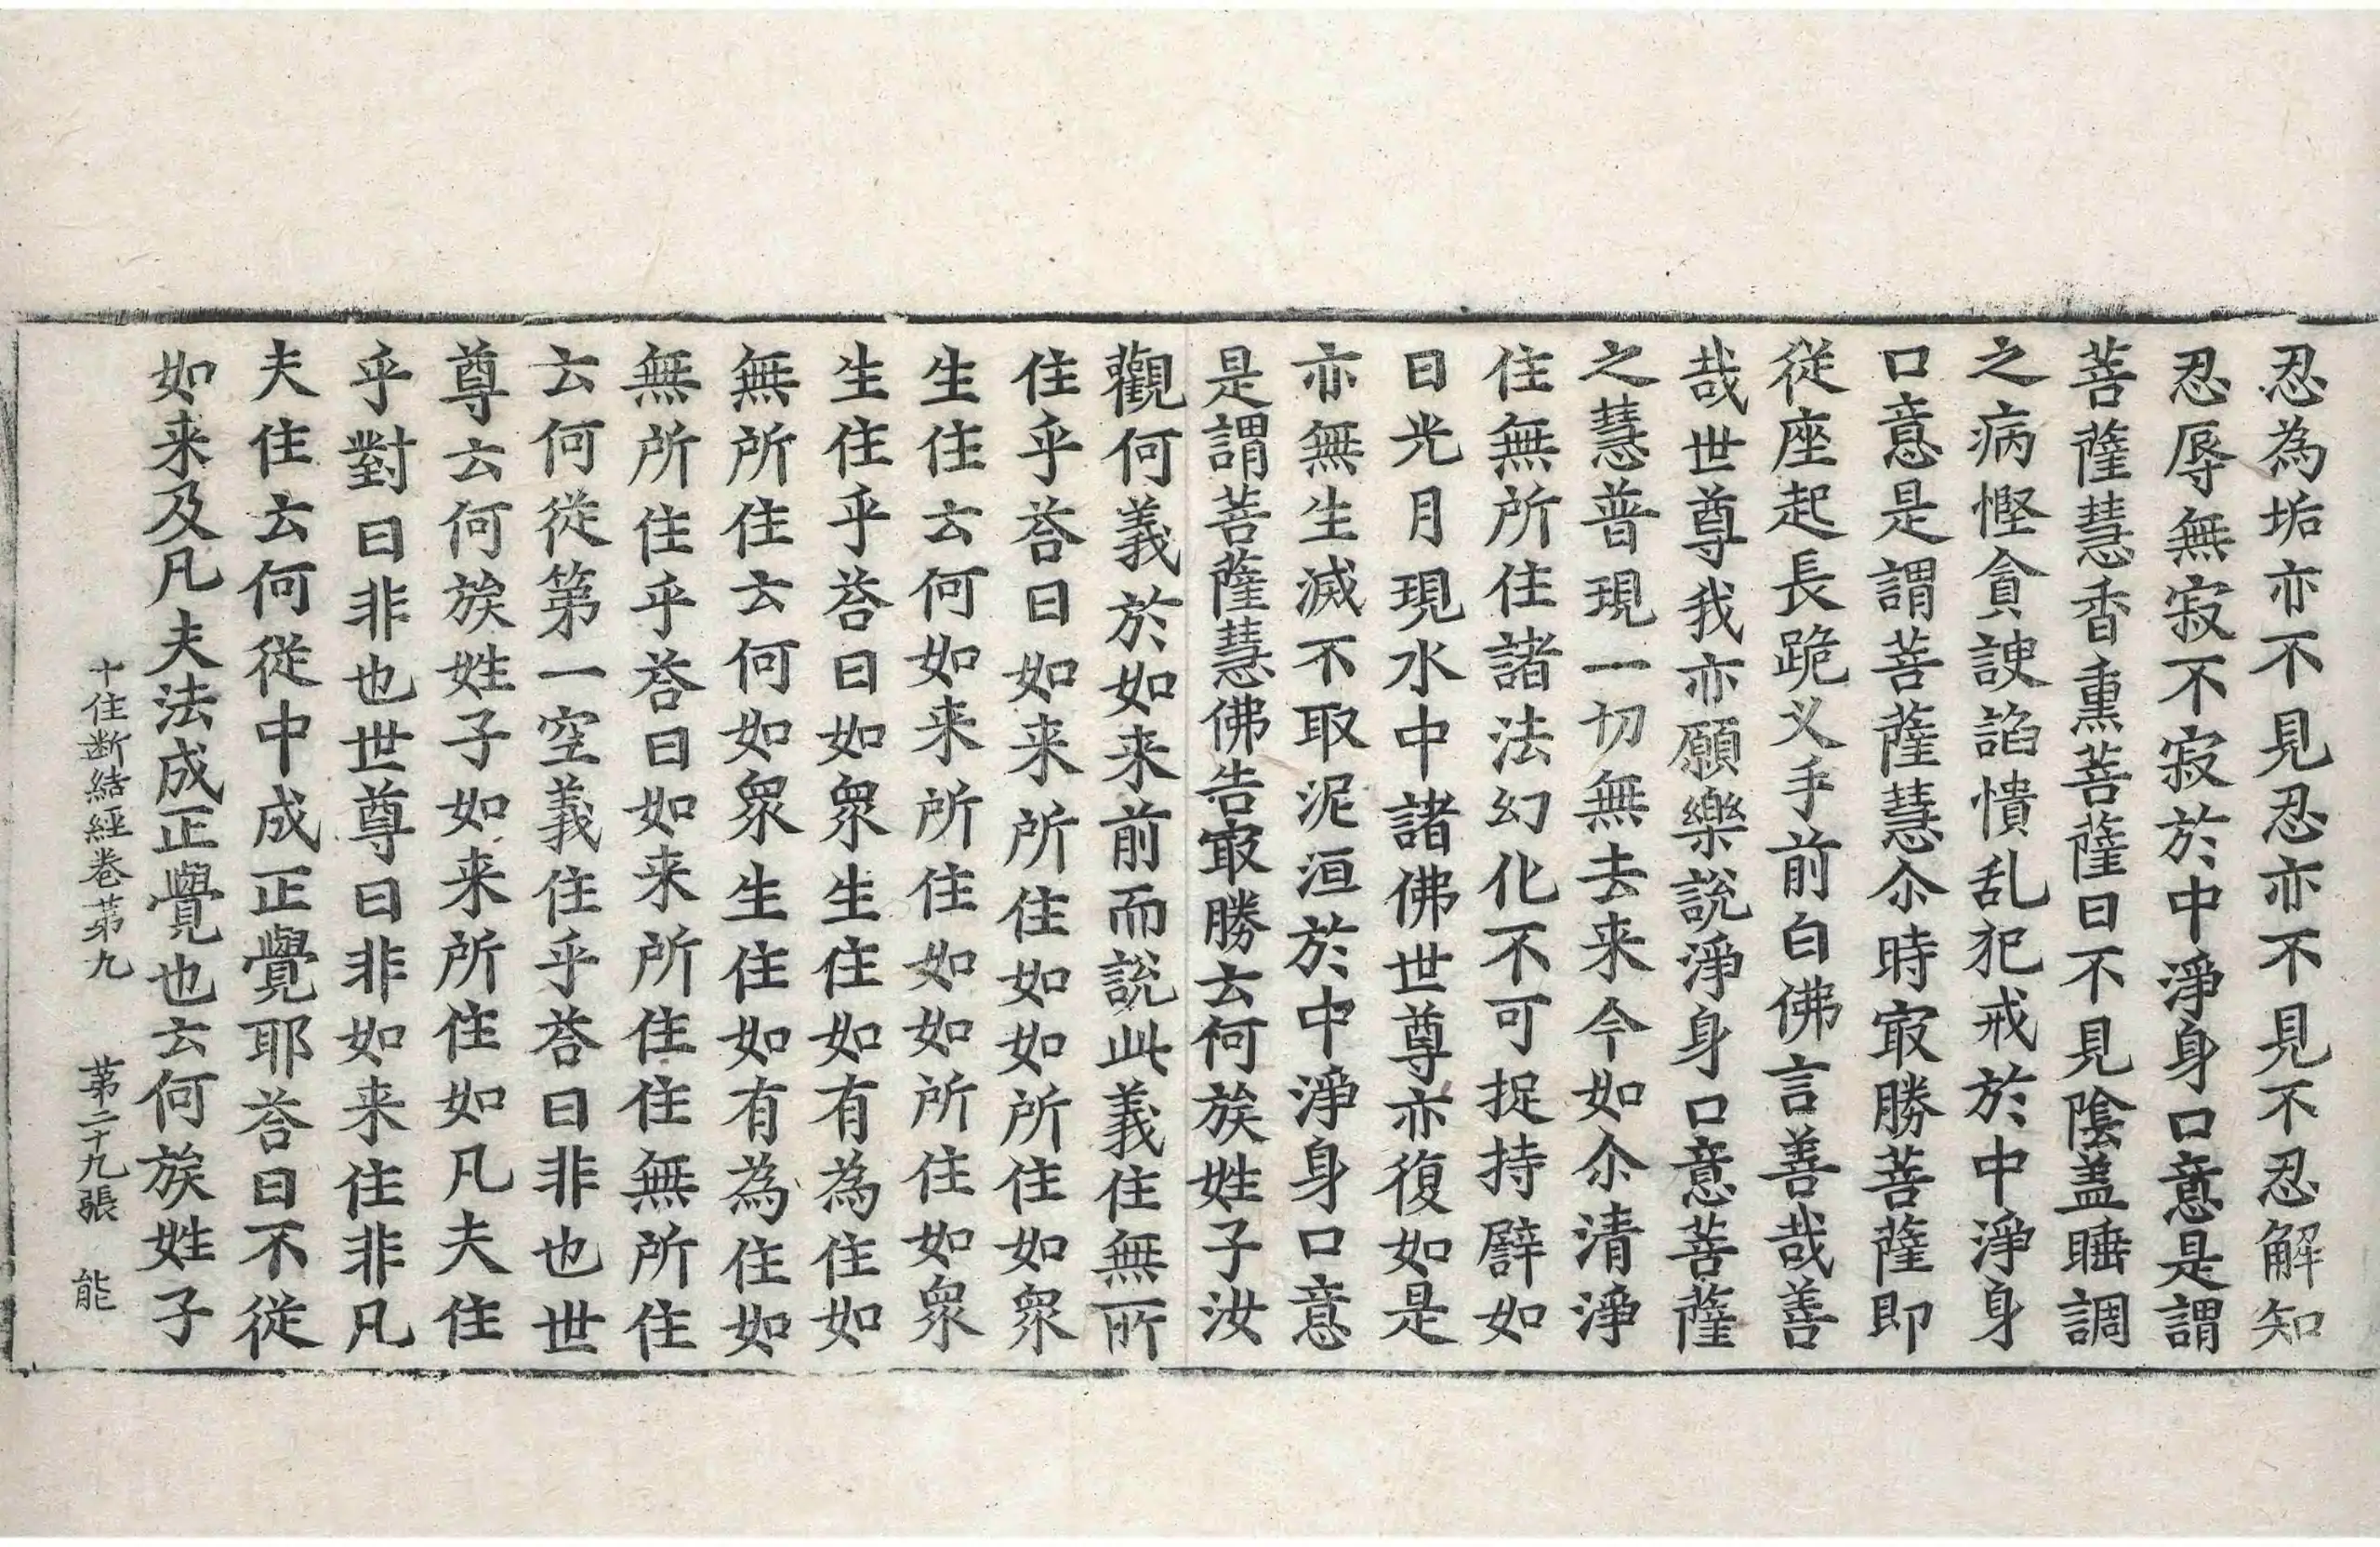 忍為垢亦不見忍亦不見不忍解知
忍辱無寂不寂於中淨身口意是謂
菩薩慧香熏菩薩曰不見陰盖睡調
之病慳貪諛諂憒乱犯戒於中淨身
口意是謂菩薩慧尒時㝡勝菩薩即
從座起長跪叉手前白佛言善哉善
哉世尊我亦願樂說淨身口意菩薩
之慧普現一切無去来今如尒清淨
住無所住諸法幻化不可捉持譬如
日光月現水中諸佛世尊亦復如是
亦無生滅不取泥洹於中淨身口意
是謂菩薩慧佛告㝡勝云何族姓子汝
觀何義於如来前而說此義住無所
住乎荅曰如来所住如如所住如衆
生住云何如来所住如如所住如衆
生住乎荅曰如衆生住如有為住如
無所住云何如衆生住如有為住如
無所住乎荅曰如来所住住無所住
云何從第一空義住乎荅曰非也世
尊云何族姓子如来所住如凡夫住
乎對曰非也世尊曰非如来住非凡
夫住云何從中成正覺耶荅曰不從
如来及凡夫法成正覺也云何族姓子
十住断結經卷苐九 苐二十九張 能